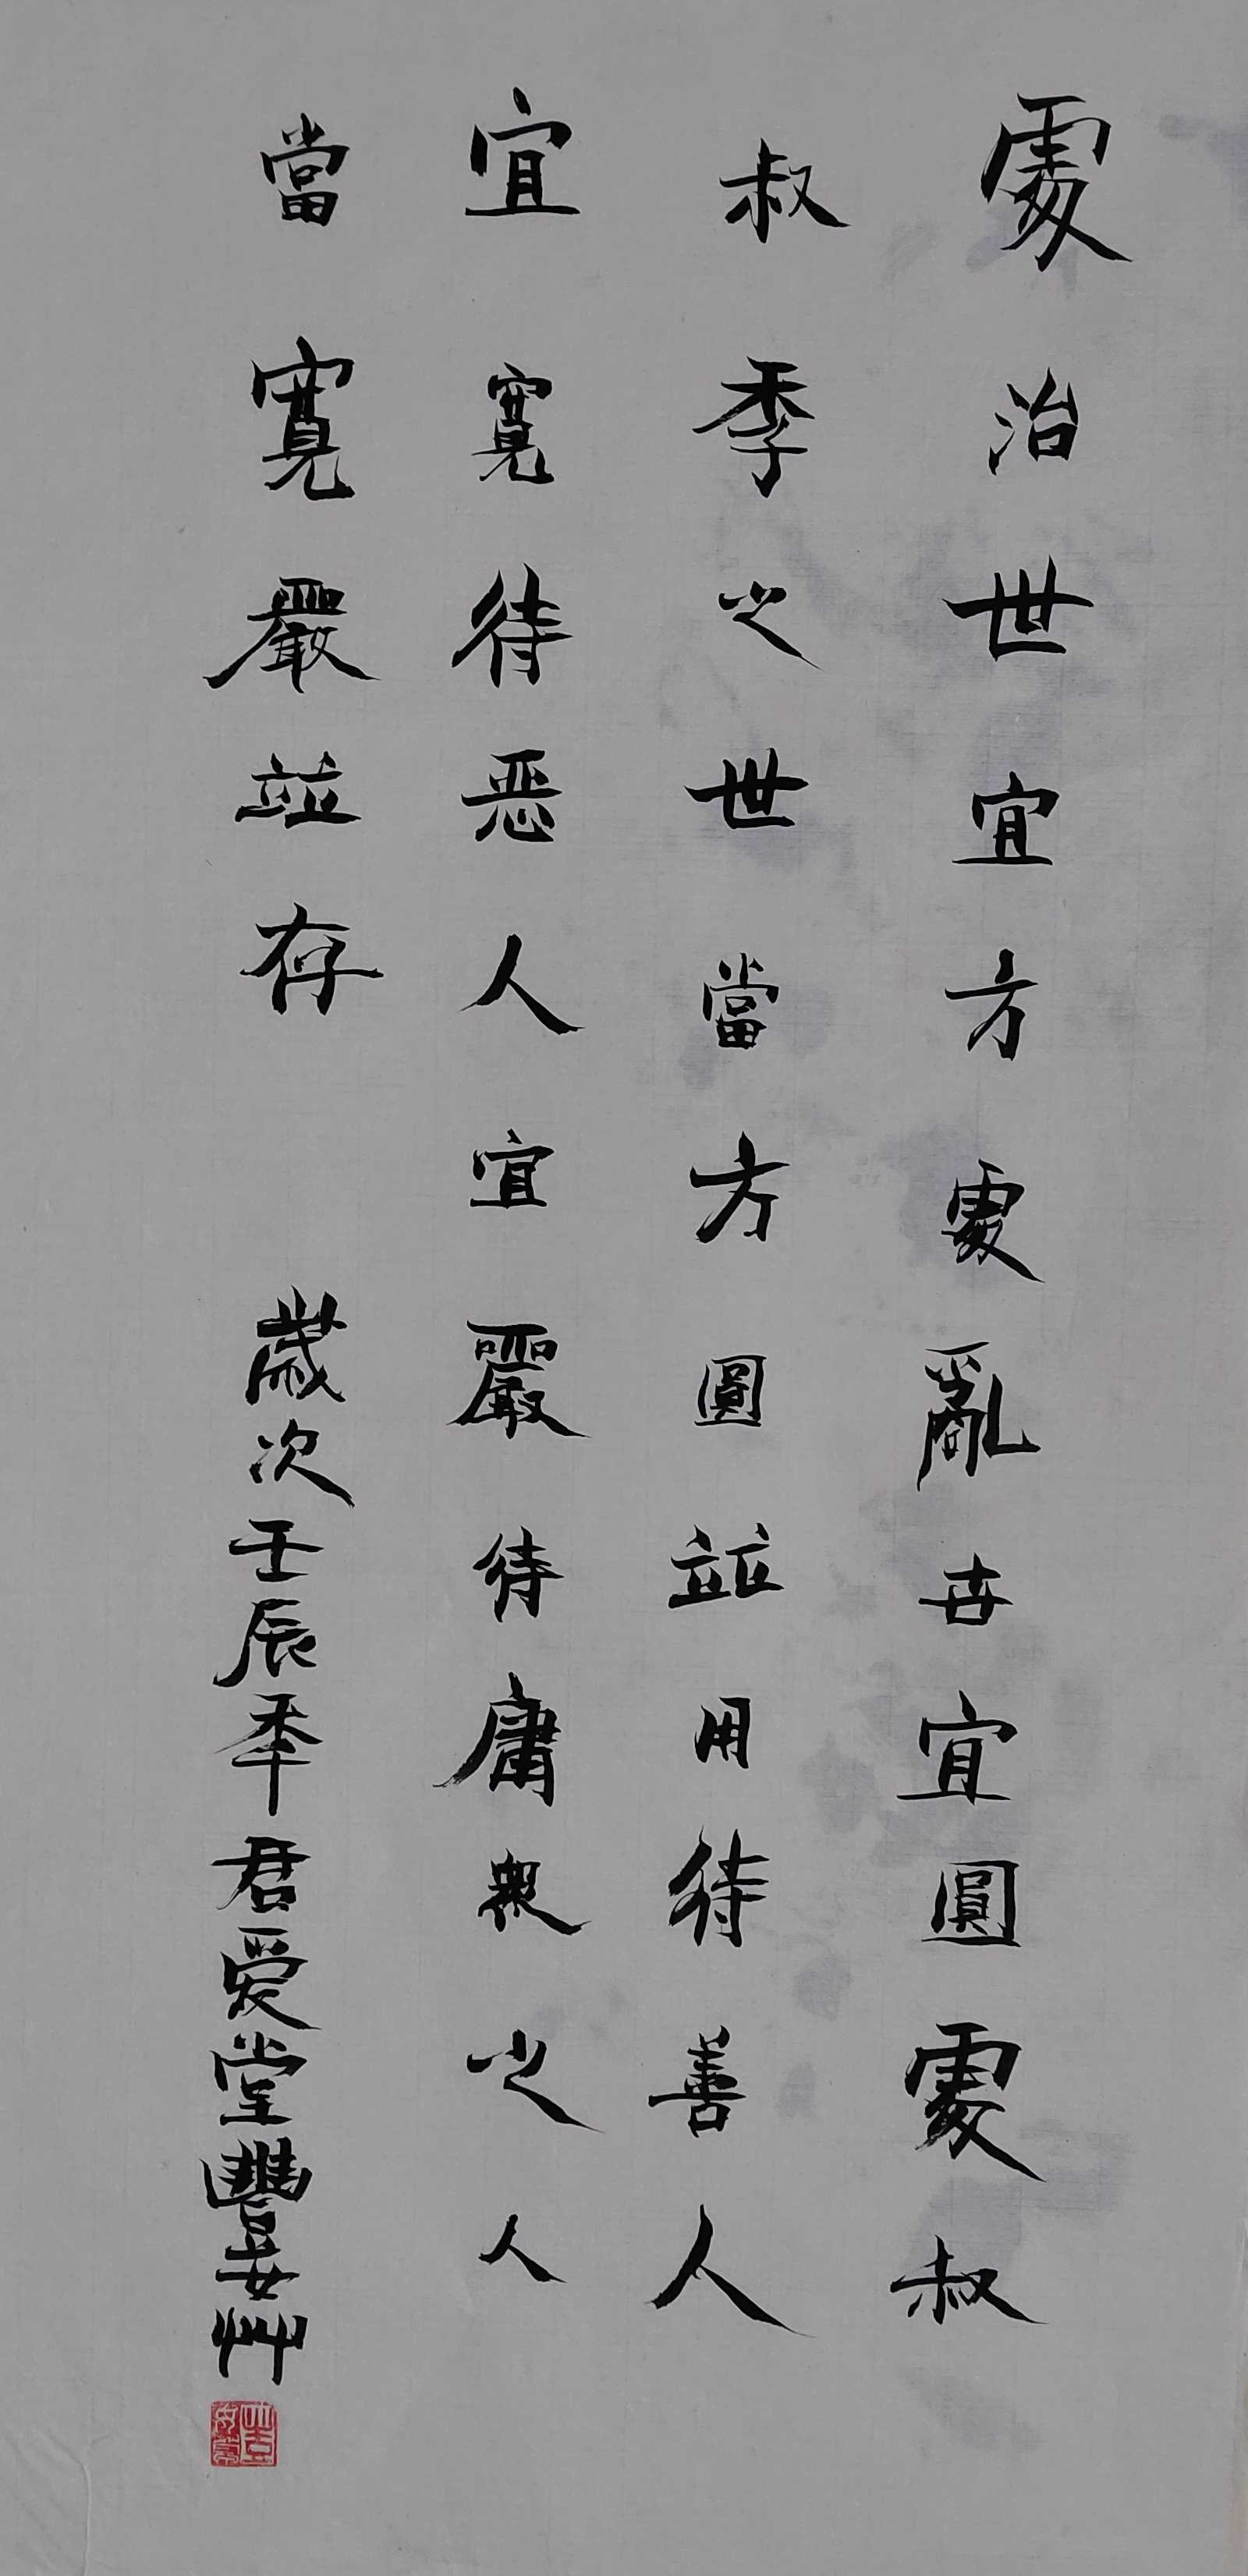 處治世宜方處亂世宜圓處叔
叔季之世當方圓竝用待善人
宜寬待恶人宜嚴待庸眾之人
當寬嚴竝存 歲次壬辰年君爱堂豐艸